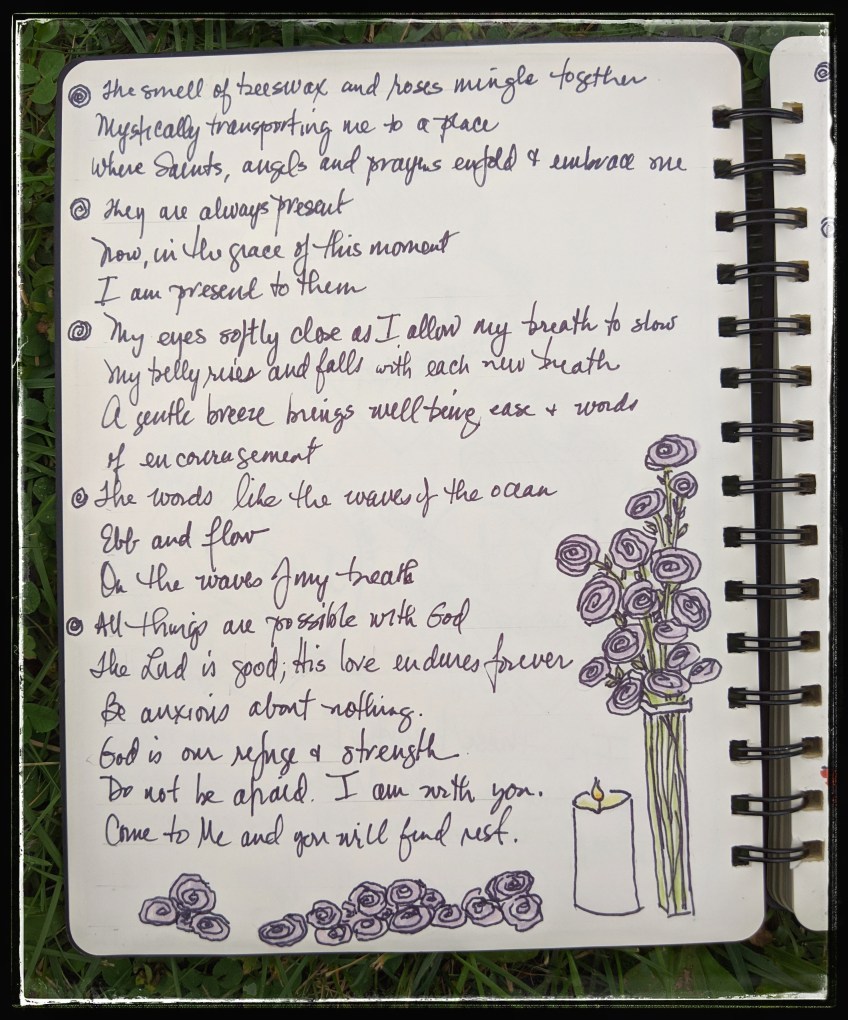 The smell of beeswax and roses mingle together
Mystically transporting me to a place
where Saints, angels and prayers enfold & embrace me
They are always present
Now, in the grace of this moment
I am present to them
My eyes softly close as I allow my breath to slow
My belly rises and falls with each new breath
A gentle breeze brings wellbeing, ease + words
of encouragement
The words like the waves of the ocean
Ebb and flow
On the waves of my breath
All things are possible with God
The Lord is good; His love endures forever
Be anxious about nothing.
God is our refuge & strength
Do not be afraid. I am with you.
Come to Me and you will find rest.